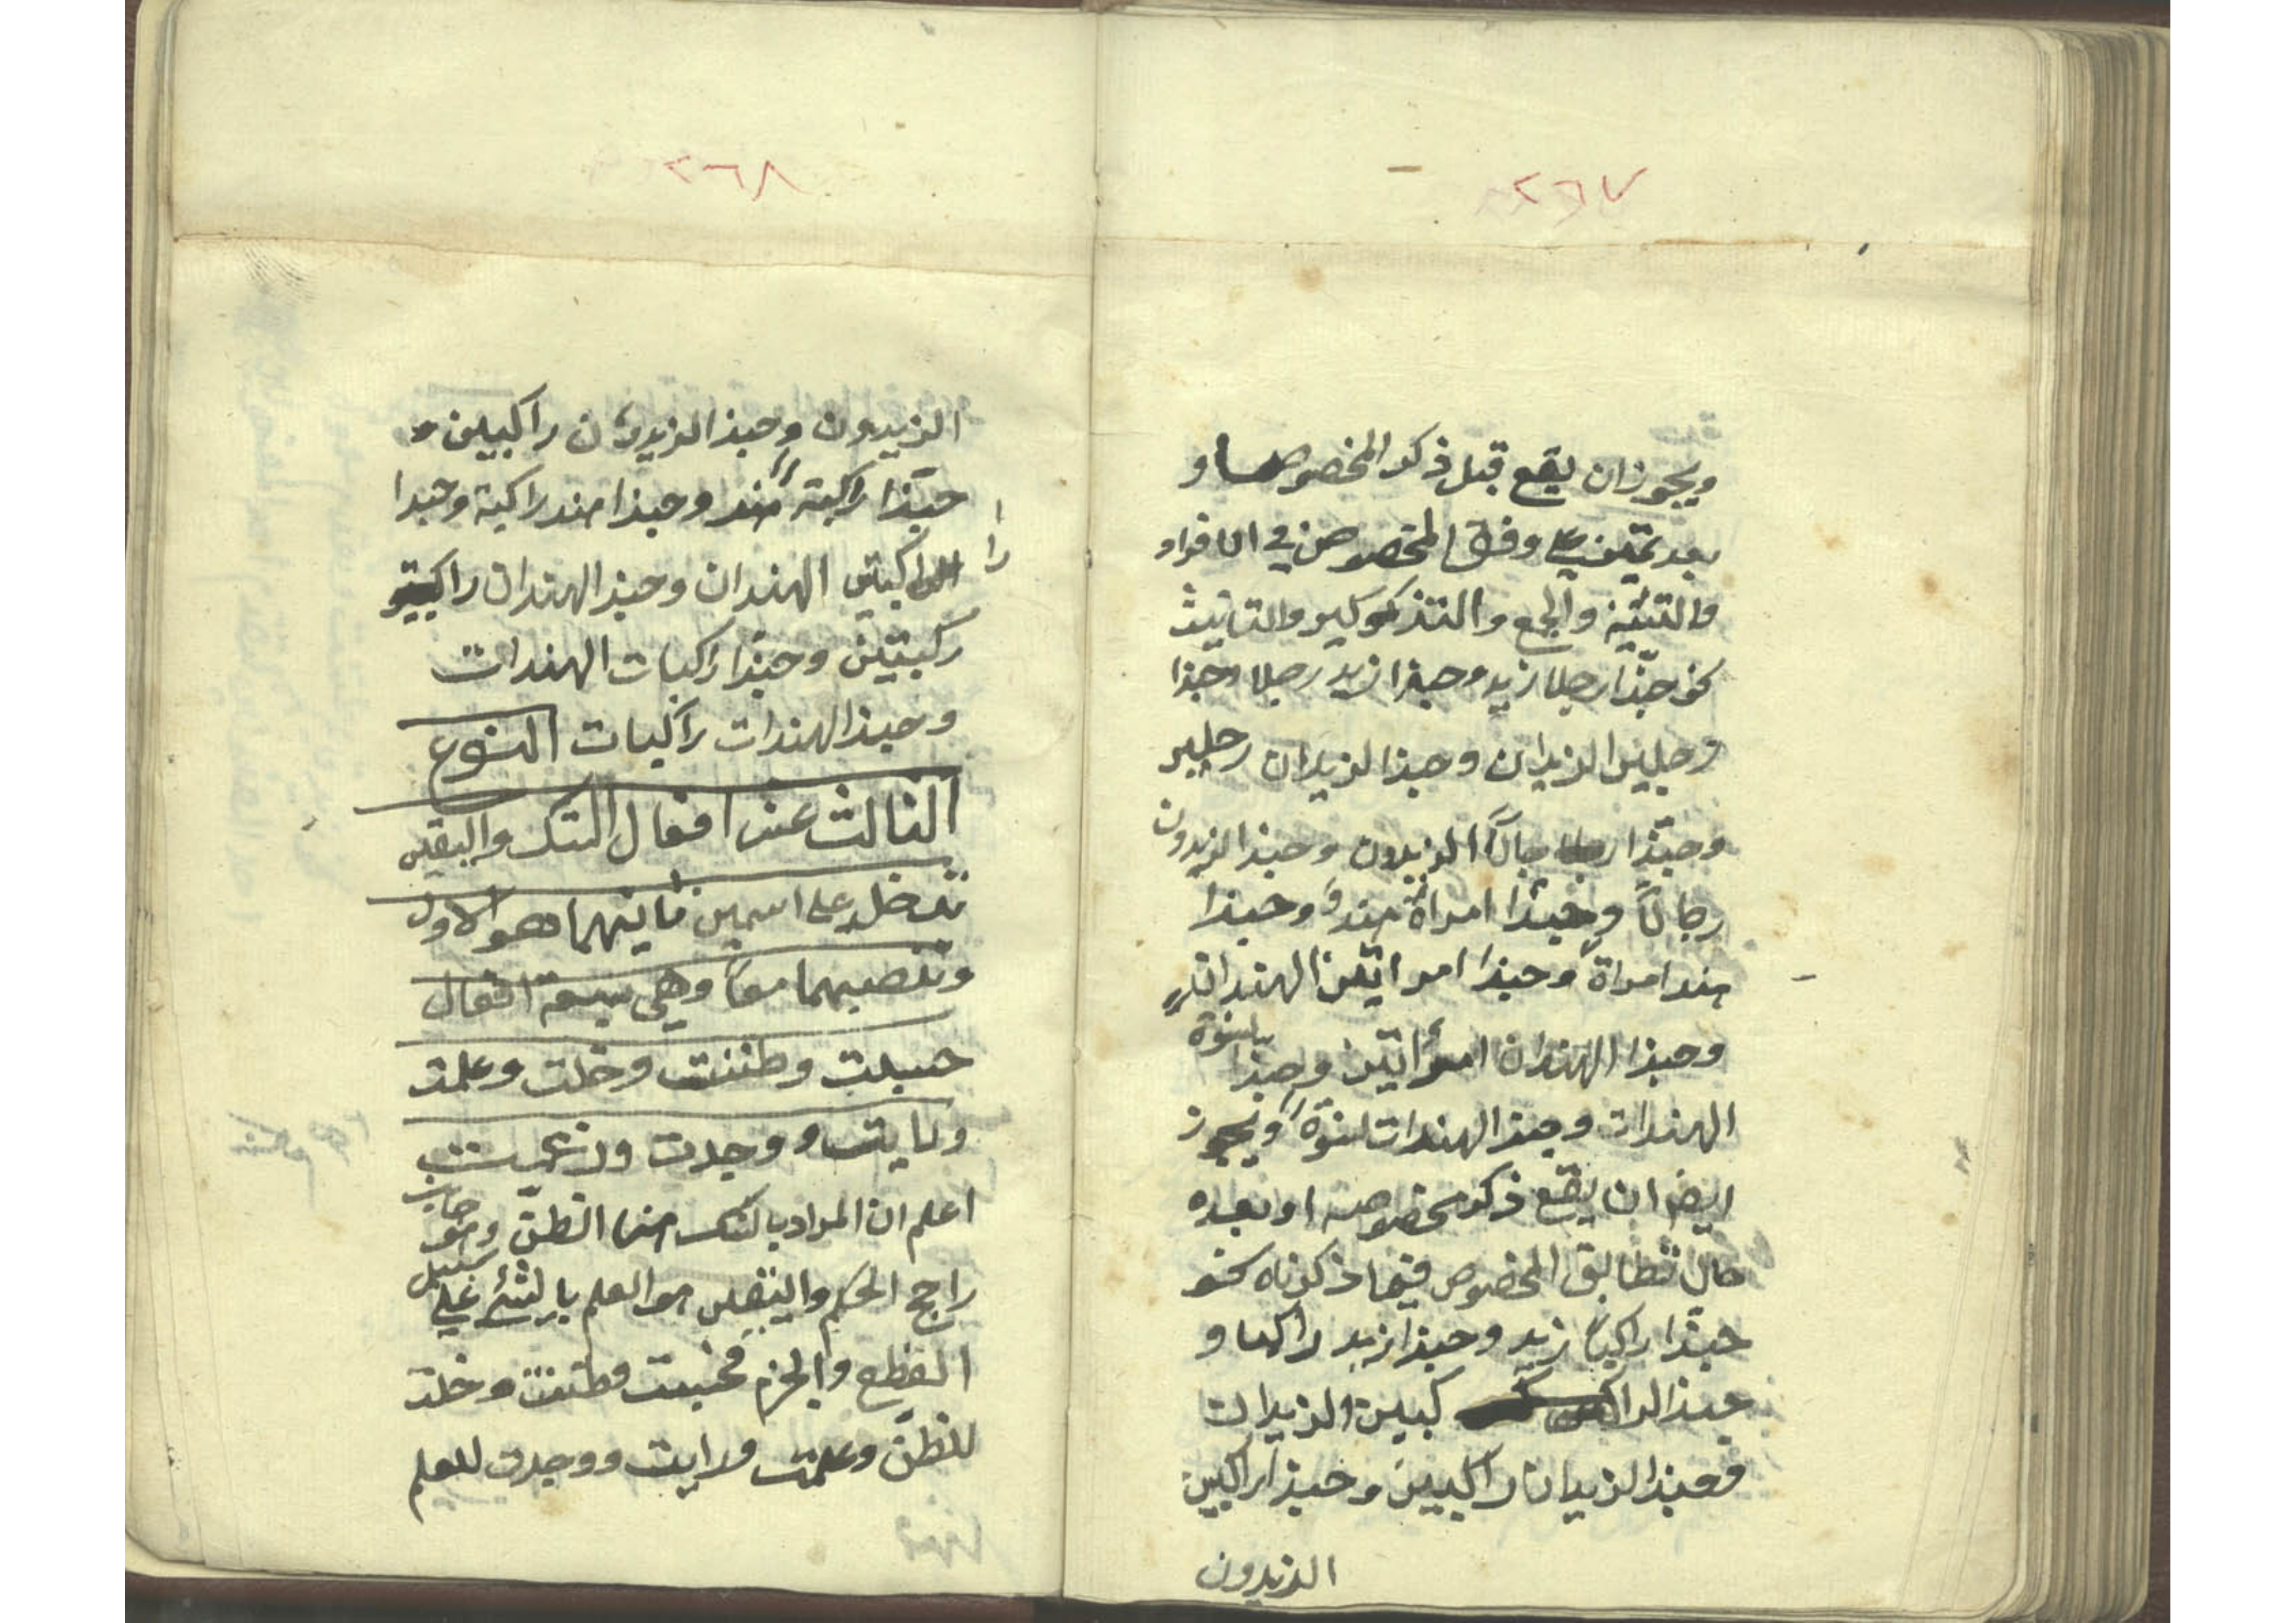 ٢٦٧
ويجوز ان يقع قبل ذكر المخصوص او
بعد تمييز على وفق المخصوص في الافراد
والتثنية والجمع والتذكير والتانيث
نحو حبذا رجلا زيد وحبذا زيد رجلا وحبذا
رجلين الزيدان وحبذا الزيدان رجلين
وحبّذا رجالًا الزيدون وحبذا الزيدون
رجالًا وحبذا امراة هند وحبذا
هند امراة وحبذا امراتين الهندان
وحبذا الهندان امراتين وحبذا نسوة
الهندات وحبذا الهندات نسوة ويجوز
ايضا ان يقع ذكر مخصوصه او بعده
حال تطابق المخصوص فيما ذكرناه نحو
حبّذا راكبا زيد وحبذا زيد راكبا و
حبذا الراكبين الزيدان
وحبذا الزيدان راكبين وحبذا راكبين
الزيدون
٢٦٨
الزيدون وحبذا الزيدون راكبين و
حبّذا راكبة هند وحبذا هند راكبة وحبذا
راكبتين الهندان وحبذ الهندان
ركبتين وحبّذا راكبات الهندات
وحبذا الهندات راكبات النوع
الثالث عشر افعال الشك واليقين
تدخل على اسمين ثانيهما هو الاول
وتنصبهما معًا وهي سبعة افعال
حسبت وظننت وخلت وعلمت
ورايت ووجدت وزعمت
اعلم ان المراد بالشك هنا الظنّ وهو جانب
راجح الحكم واليقين هو العلم بالشئ على سبيل
القطع والجزم فحسبت وظننت وخلت
للظنّ وعلمت ورايت ووجدت للعلم